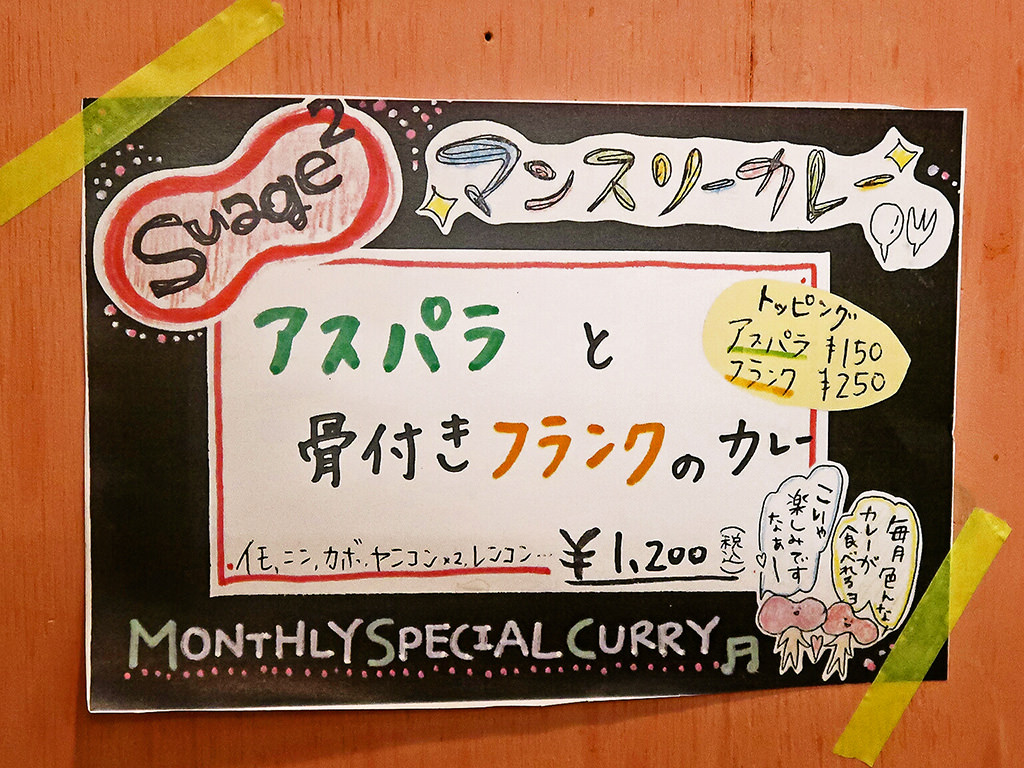 Suage²
マンスリーカレー
トッピング
アスパラ ¥150
フランク ¥250
アスパラ と
骨付きフランクのカレー
イモ,ニン,カボ,ヤンコン×2,レンコン…
¥1,200 (税込)
こいゃ
楽しみです
なぁー♡
毎月色んな
カレーが
食べれるョ
MONTHLY SPECIAL CURRY♬